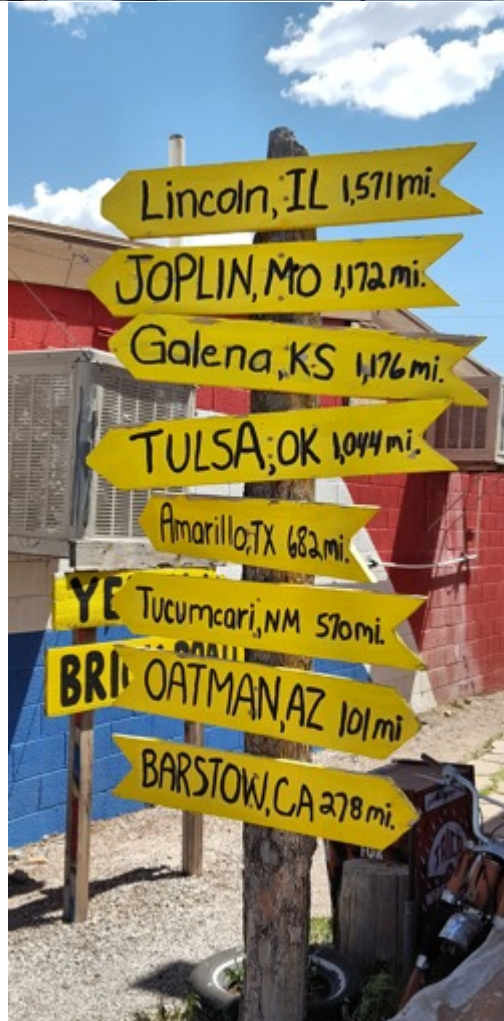 Lincoln, IL 1,571 mi.
JOPLIN, MO 1,172 mi.
Galena, KS 1,176 mi.
TULSA, OK 1,044 mi.
Amarillo, TX 682 mi.
YE
Tucumcari, NM 570 mi.
BRI
OATMAN, AZ 101 mi
BARSTOW, CA 278 mi.